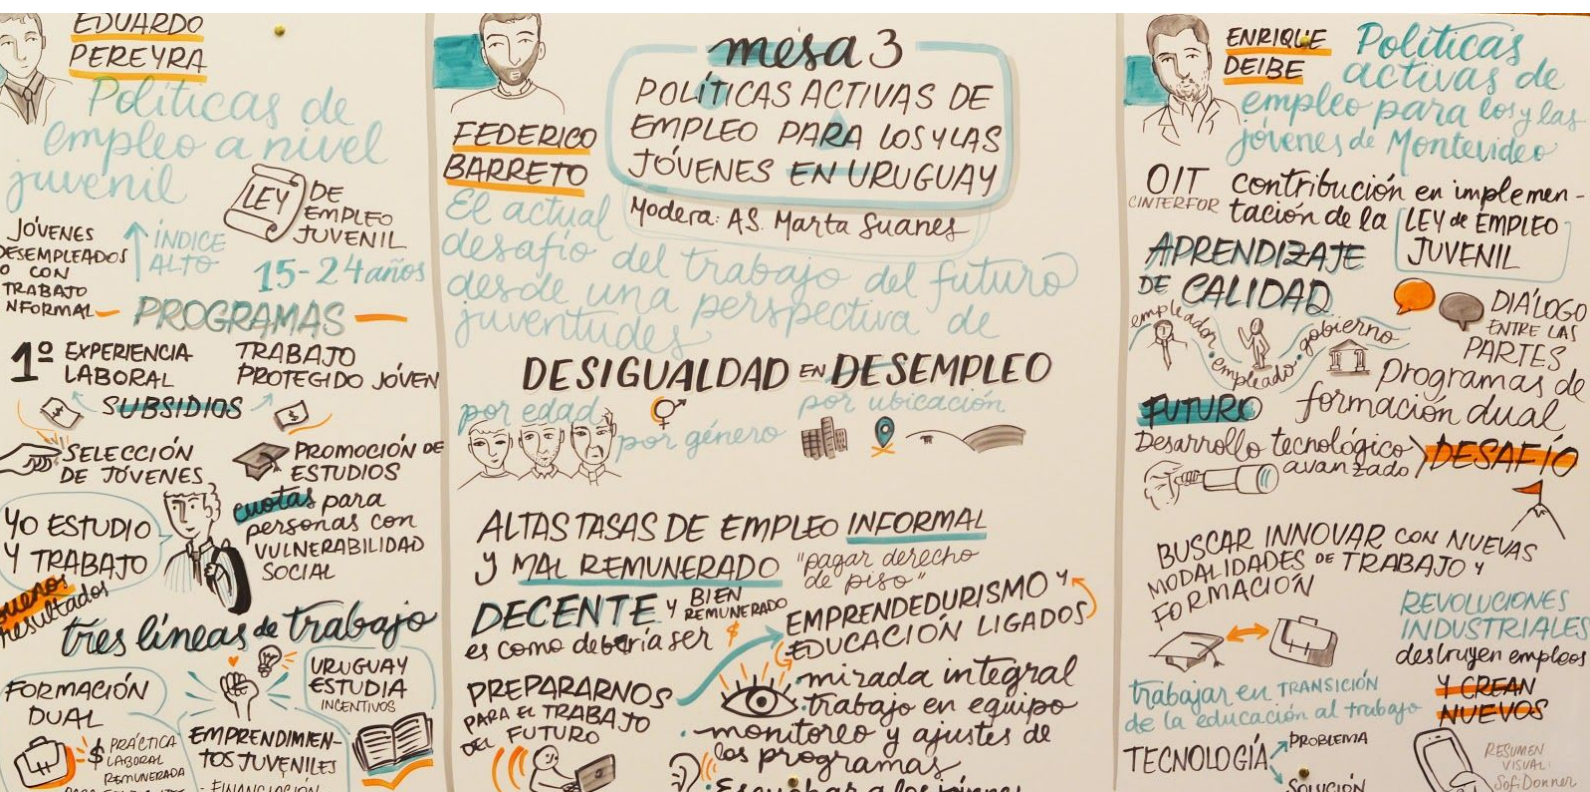 EDUARDO
PEREYRA
Políticas de
empleo a nivel
juvenil
LEY
DE
EMPLEO
JUVENIL
15-24 años
JÓVENES
DESEMPLEADOS
O CON
TRABAJO
NFORMAL
ÍNDICE
ALTO
PROGRAMAS
1º EXPERIENCIA
LABORAL
TRABAJO
PROTEGIDO JOVEN
SUBSIDIOS
SELECCIÓN
DE JÓVENES
PROMOCIÓN DE
ESTUDIOS
cuotas para
personas con
VULNERABILIDAD
SOCIAL
YO ESTUDIO
Y TRABAJO
buenos
resultados
tres líneas de trabajo
FORMACIÓN
DUAL
$ PRÁCTICA
LABORAL
REMUNERADA
EMPRENDIMIEN-
TOS JUVENILES
- FINANCIACIÓN
URUGUAY
ESTUDIA
INCENTIVOS
FEDERICO
BARRETO
mesa 3
POLÍTICAS ACTIVAS DE
EMPLEO PARA LOS Y LAS
JÓVENES EN URUGUAY
Modera: AS. Marta Suanes
El actual
desafío del trabajo del futuro
desde una perspectiva de
juventudes
DESIGUALDAD EN DESEMPLEO
por edad
por género
por ubicación
ALTAS TASAS DE EMPLEO INFORMAL
Y MAL REMUNERADO
"pagar derecho
de piso"
DECENTE Y BIEN
REMUNERADO
es como debería ser $
EMPRENDEDURISMO Y
EDUCACIÓN LIGADOS
PREPARARNOS
PARA EL TRABAJO
DEL FUTURO
· mirada integral
· trabajo en equipo
· monitoreo y ajustes de
los programas
· Escuchar a los jóvenes
ENRIQUE
DEIBE
Políticas
activas de
empleo para los y las
jóvenes de Montevideo
OIT
CINTERFOR
contribución en implemen-
tación de la LEY de EMPLEO
JUVENIL
APRENDIZAJE
DE CALIDAD
empleador · empleado · gobierno
DIÁLOGO
ENTRE LAS
PARTES
Programas de
formación dual
FUTURO
Desarrollo tecnológico
avanzado
DESAFÍO
BUSCAR INNOVAR CON NUEVAS
MODALIDADES DE TRABAJO Y
FORMACIÓN
REVOLUCIONES
INDUSTRIALES
destruyen empleos
Y CREAN
NUEVOS
trabajar en TRANSICIÓN
de la educación al trabajo
TECNOLOGÍA
PROBLEMA
SOLUCIÓN
RESUMEN
VISUAL:
SofiDonner